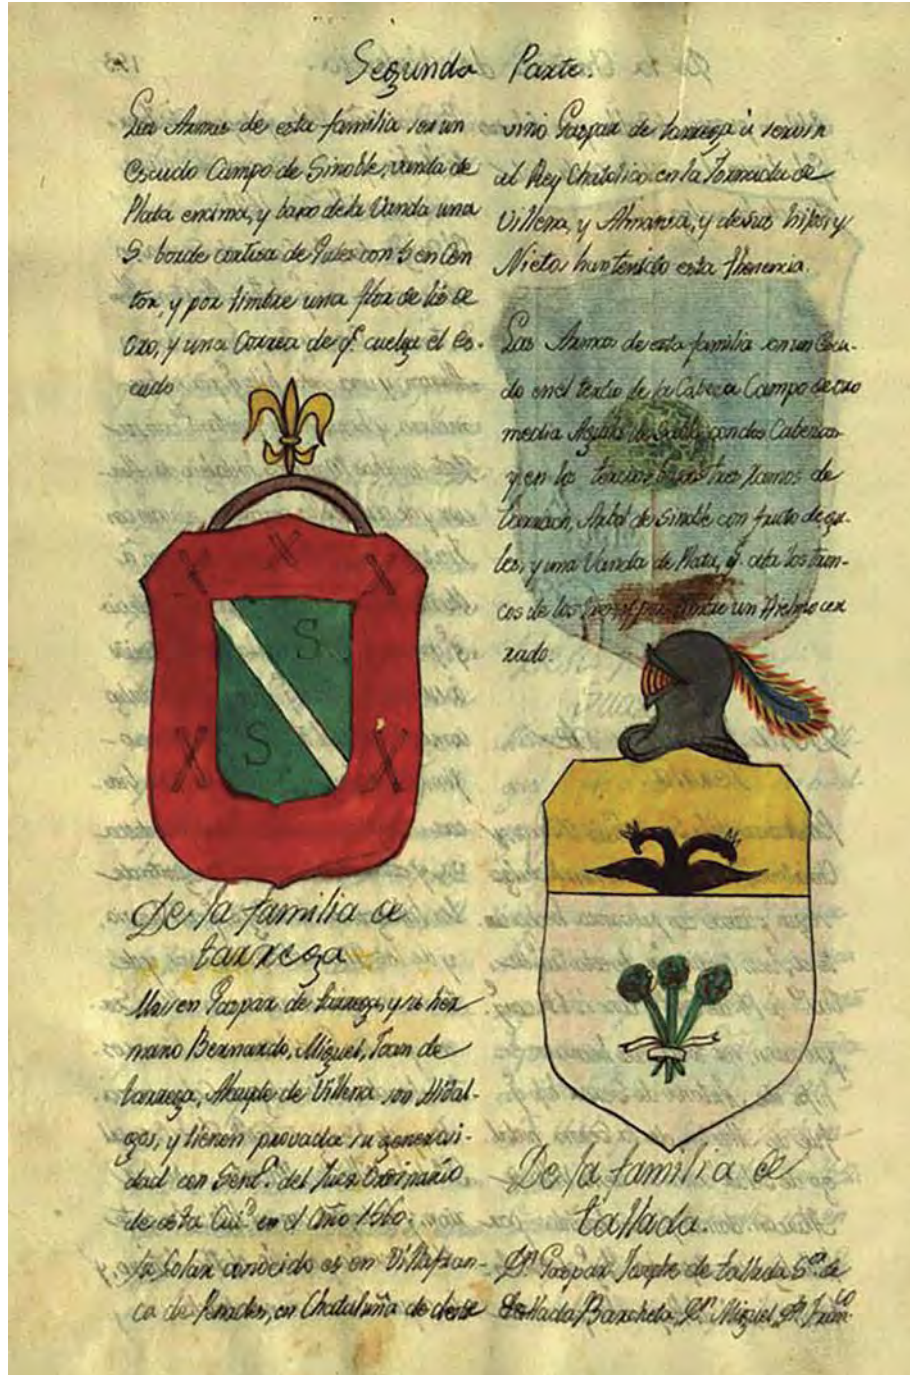 Segunda Parte.
Las Armas de esta familia son un
Escudo Campo de Sinoble, vanda de
Plata encima, y baxo de la Vanda una
S. borde de Gules con 5 en Con
tor, y por timbre una flor de lis de
Oro, y una Correa de q.e cuelga el Es-
cudo
S
S
De la familia de
tarrega
Mosen Gaspar de tarrega, y su her
mano Bernardo, Miguel, Joan de
tarrega, Alcayde de Villena son Hidal-
gos, y tienen provada su generosi-
dad con Sent.a del Juez Ordinario
de esta Ciu.d en el Año 1560.
Su Solar conócido es en Villafran-
ca de Penades, en Chataluña de donde
vino Gaspar de tarrega à servir
al Rey Chatolico en la Jornada de
Villena, y Almansa, y de sus hijos, y
Nietos han tenido esta
Las Armas de esta familia son un Escu-
do en el tercio de la Cabeza Campo de oro
media Aguila de Sable con dos Cabezas
y en los tercios tres Ramos de
Arbol de Sinoble con fruto de gu-
les, y una Vanda de Plata, q. ata los tron-
cos de los un Yelmo cer
rado.
De la familia de
tallada.
D.n Gaspar Joseph de tallada S.or de
Barcheta, D.n Miguel, D.n